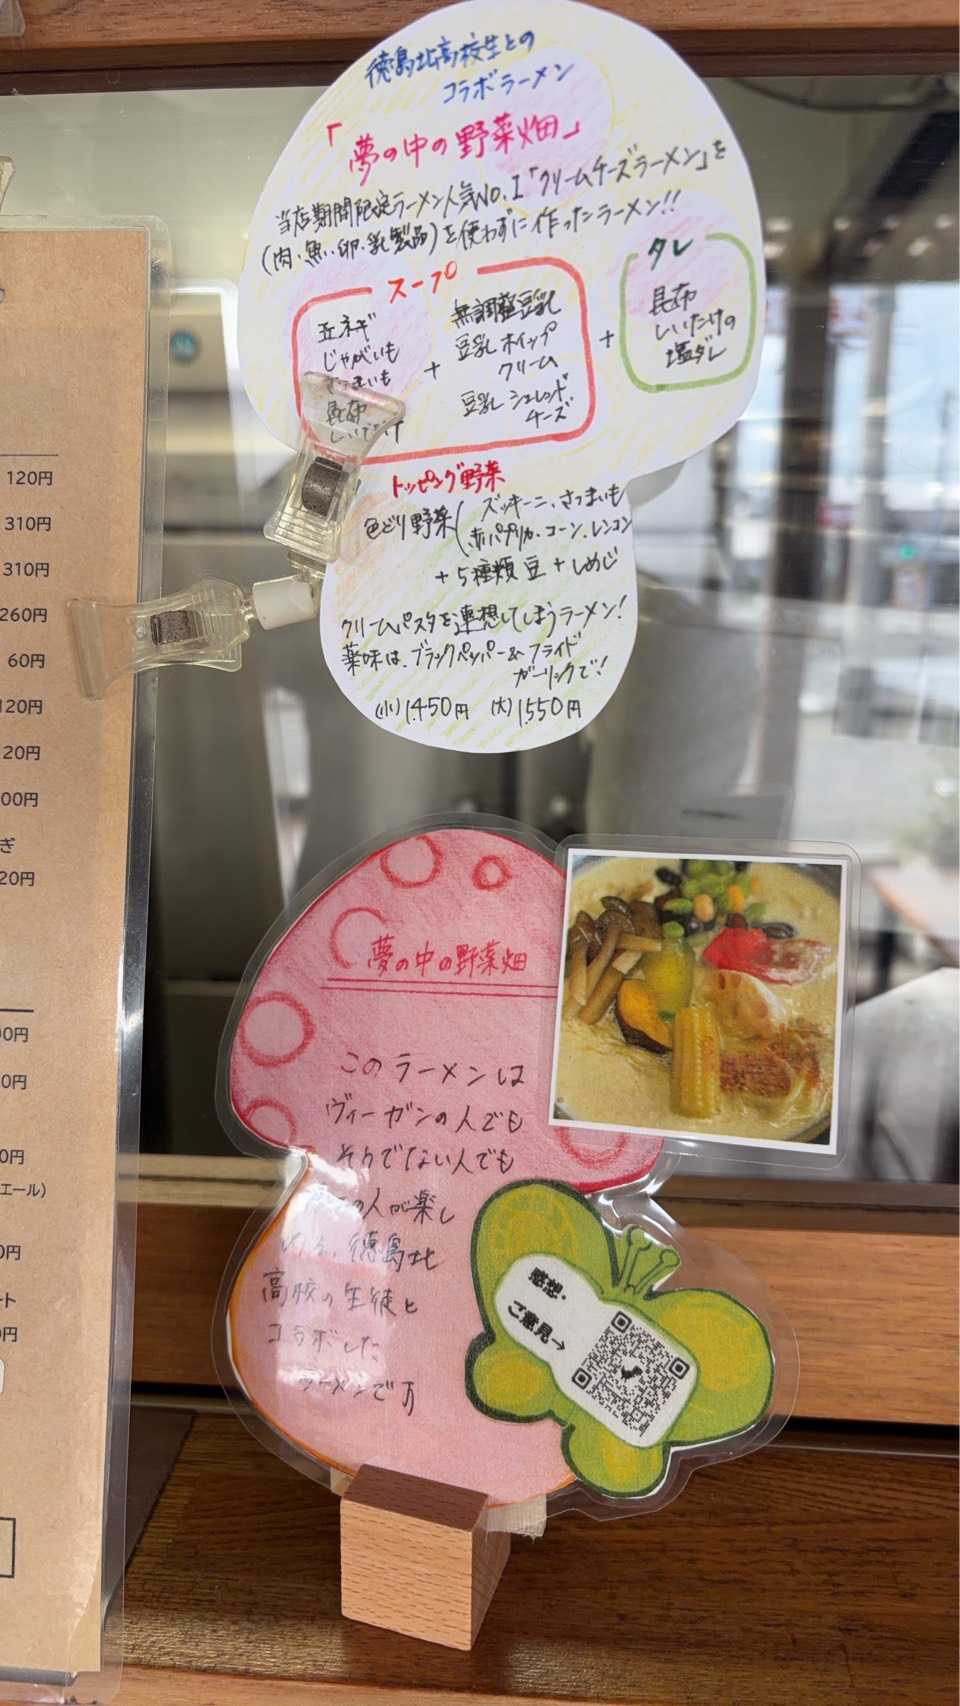 徳島北高校生との
コラボラーメン
「夢の中の野菜畑」
当店期間限定ラーメン人気NO.1「クリームチーズラーメン」を
(肉・魚・卵・乳製品)を使わずに作ったラーメン!!
スープ
玉ネギ
じゃがいも
さつまいも
昆布
しいたけ
+
無調整豆乳
豆乳ホイップ
クリーム
豆乳シュレッド
チーズ
+
タレ
昆布
しいたけの
塩ダレ
トッピング野菜
色どり野菜(ズッキーニ、さつまいも
赤パプリカ、コーン、レンコン
+5種類豆+しめじ
クリームパスタを連想してしまうラーメン!
薬味は、ブラックペッパー&フライド
ガーリックで!
(小)1,450円 (大)1,550円
120円
310円
310円
260円
60円
120円
20円
00円
ぎ
20円
00円
0円
0円
エール)
0円
ート
0円
夢の中の野菜畑
このラーメンは
ヴィーガンの人でも
そうでない人でも
の人が楽し
める、徳島北
高校の生徒と
コラボした
ラーメンです
感想・
ご意見→